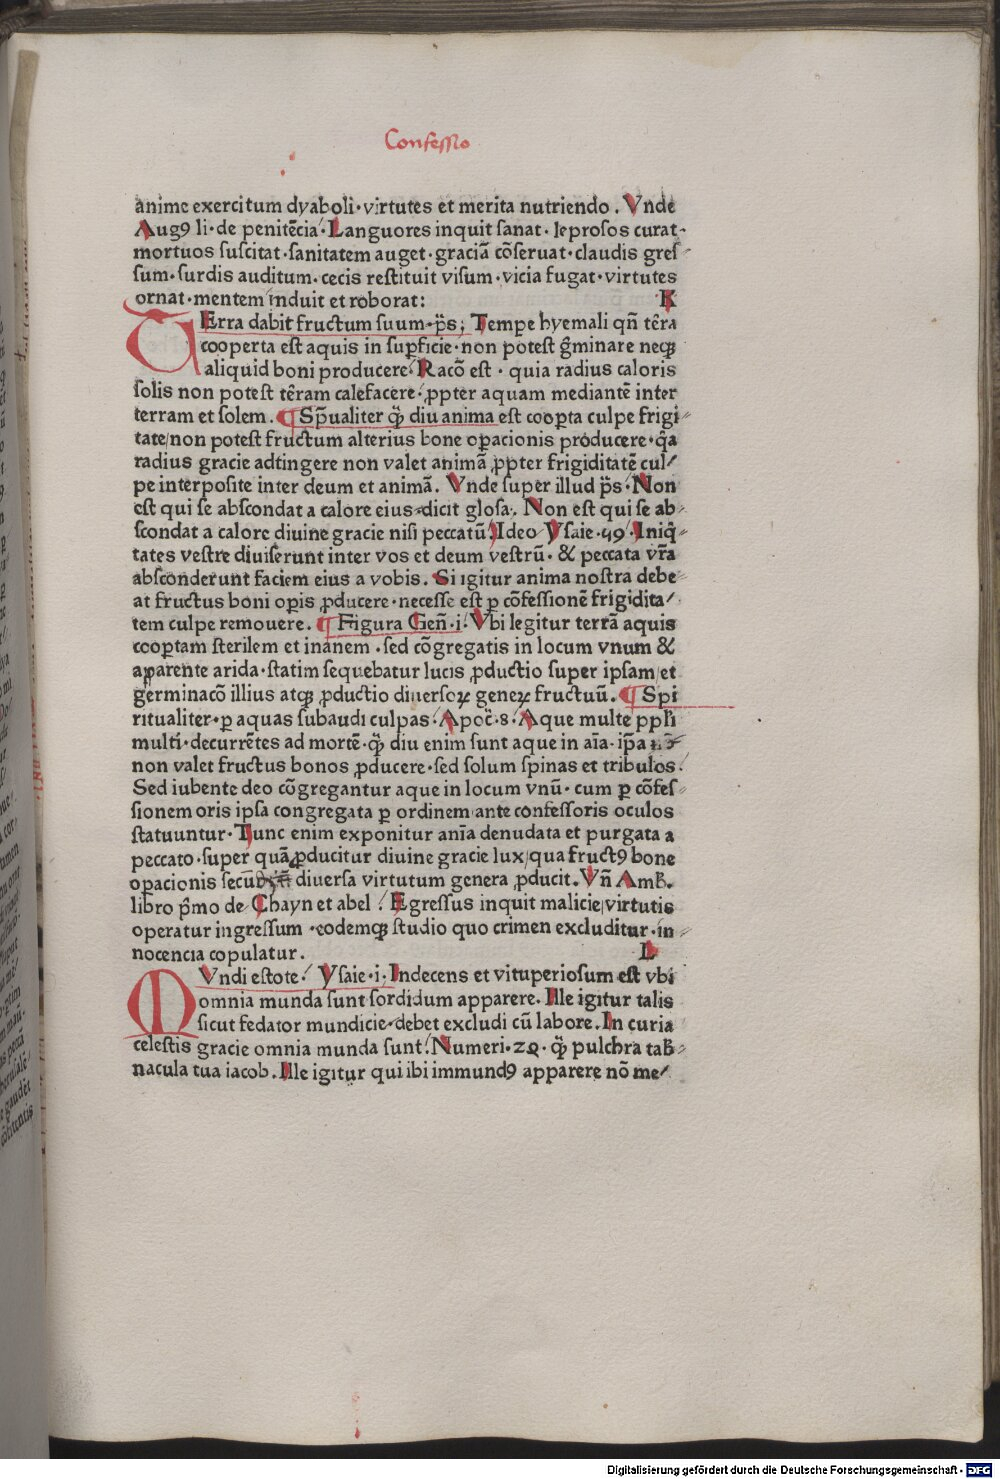 Confessio
anime exercitum dyaboli· virtutes et merita nutriendo. Vnde
Augꝯ li· de penitēcia· Languores inquit sanat· leprosos curat·
mortuos suscitat· sanitatem auget· graciā cōseruat· claudis gres⸗
sum· surdis auditum· cecis restituit visum· vicia fugat· virtutes
ornat· mentem induit et roborat: K
TErra dabit fructum suum· p̄s; Tempe hyemali qn̄ têra
cooperta est aquis in sup̲ficie· non potest ḡminare neqꝫ
aliquid boni producere. Racō est· quia radius caloris
solis non potest têram calefacere· ꝓpter aquam mediantē inter
terram et solem. ¶ Sp̄ualiter qꝫ̄ diu anima est coop̲ta culpe frigi⸗
tate non potest fructum alterius bone op̲acionis producere· q̄a
radius gracie adtingere non valet animā ꝓpter frigiditatē cul⸗
pe interposite inter deum et animā. Vnde super illud p̄s· Non
est qui se abscondat a calore eius· dicit glosa. Non est qui se ab⸗
scondat a calore diuine gracie nisi peccatū. Ideo Ysaie ·59· Iniq̄⸗
tates vestre diuiserunt inter vos et deum vestrū· & peccata vr̄a
absconderunt faciem eius a vobis. Si igitur anima nostra debe⸗
at fructus boni op̲is ꝓducere· necesse est ꝑ cōfessionē frigidita⸗
tem culpe remouere. ¶ Figura Gen̄·i· Vbi legitur terrā aquis
coop̲tam sterilem et inanem· sed cōgregatis in locum vnum &
apparente arida· statim sequebatur lucis ꝓductio super ipsam et
germinacō illius atqꝫ ꝓductio diuersoꝝ geneꝝ fructuū. ¶ Spi
ritualiter· ꝑ aquas subaudi culpas· Apoc̄·8· Aque multe ppl̄i
multi· decurrētes ad mortē· qꝫ̄ diu enim sunt aque in aīa· ip̄a
non valet fructus bonos ꝓducere· sed solum spinas et tribulos.
Sed iubente deo cōgregantur aque in locum vnū· cum ꝑ cōfes⸗
sionem oris ipsa congregata ꝑ ordinem ante confessoris oculos
statuuntur· Tunc enim exponitur anīa denudata et purgata a
peccato· super quā ꝓducitur diuine gracie lux qua fructꝯ bone
op̲acionis diuersa virtutum genera ꝓducit. Vn̄ Amb̄.
libro p̄mo de Chayn et abel. Egressus inquit malicie virtutis
operatur ingressum· eodemqꝫ studio quo crimen excluditur· in⸗
nocencia copulatur. L
MVndi estote. Ysaie·i· Indecens et vituperiosum est vbi
omnia munda sunt sordidum apparere. Ille igitur talis
sicut fedator mundicie· debet excludi cū labore. In curia
celestis gracie omnia munda sunt. Numeri·24· qꝫ̄ pulchra tab̄⸗
nacula tua iacob. Ille igitur qui ibi immundꝯ apparere nō me⸗
Digitalisierung gefördert durch die Deutsche Forschungsgemeinschaft - DFG